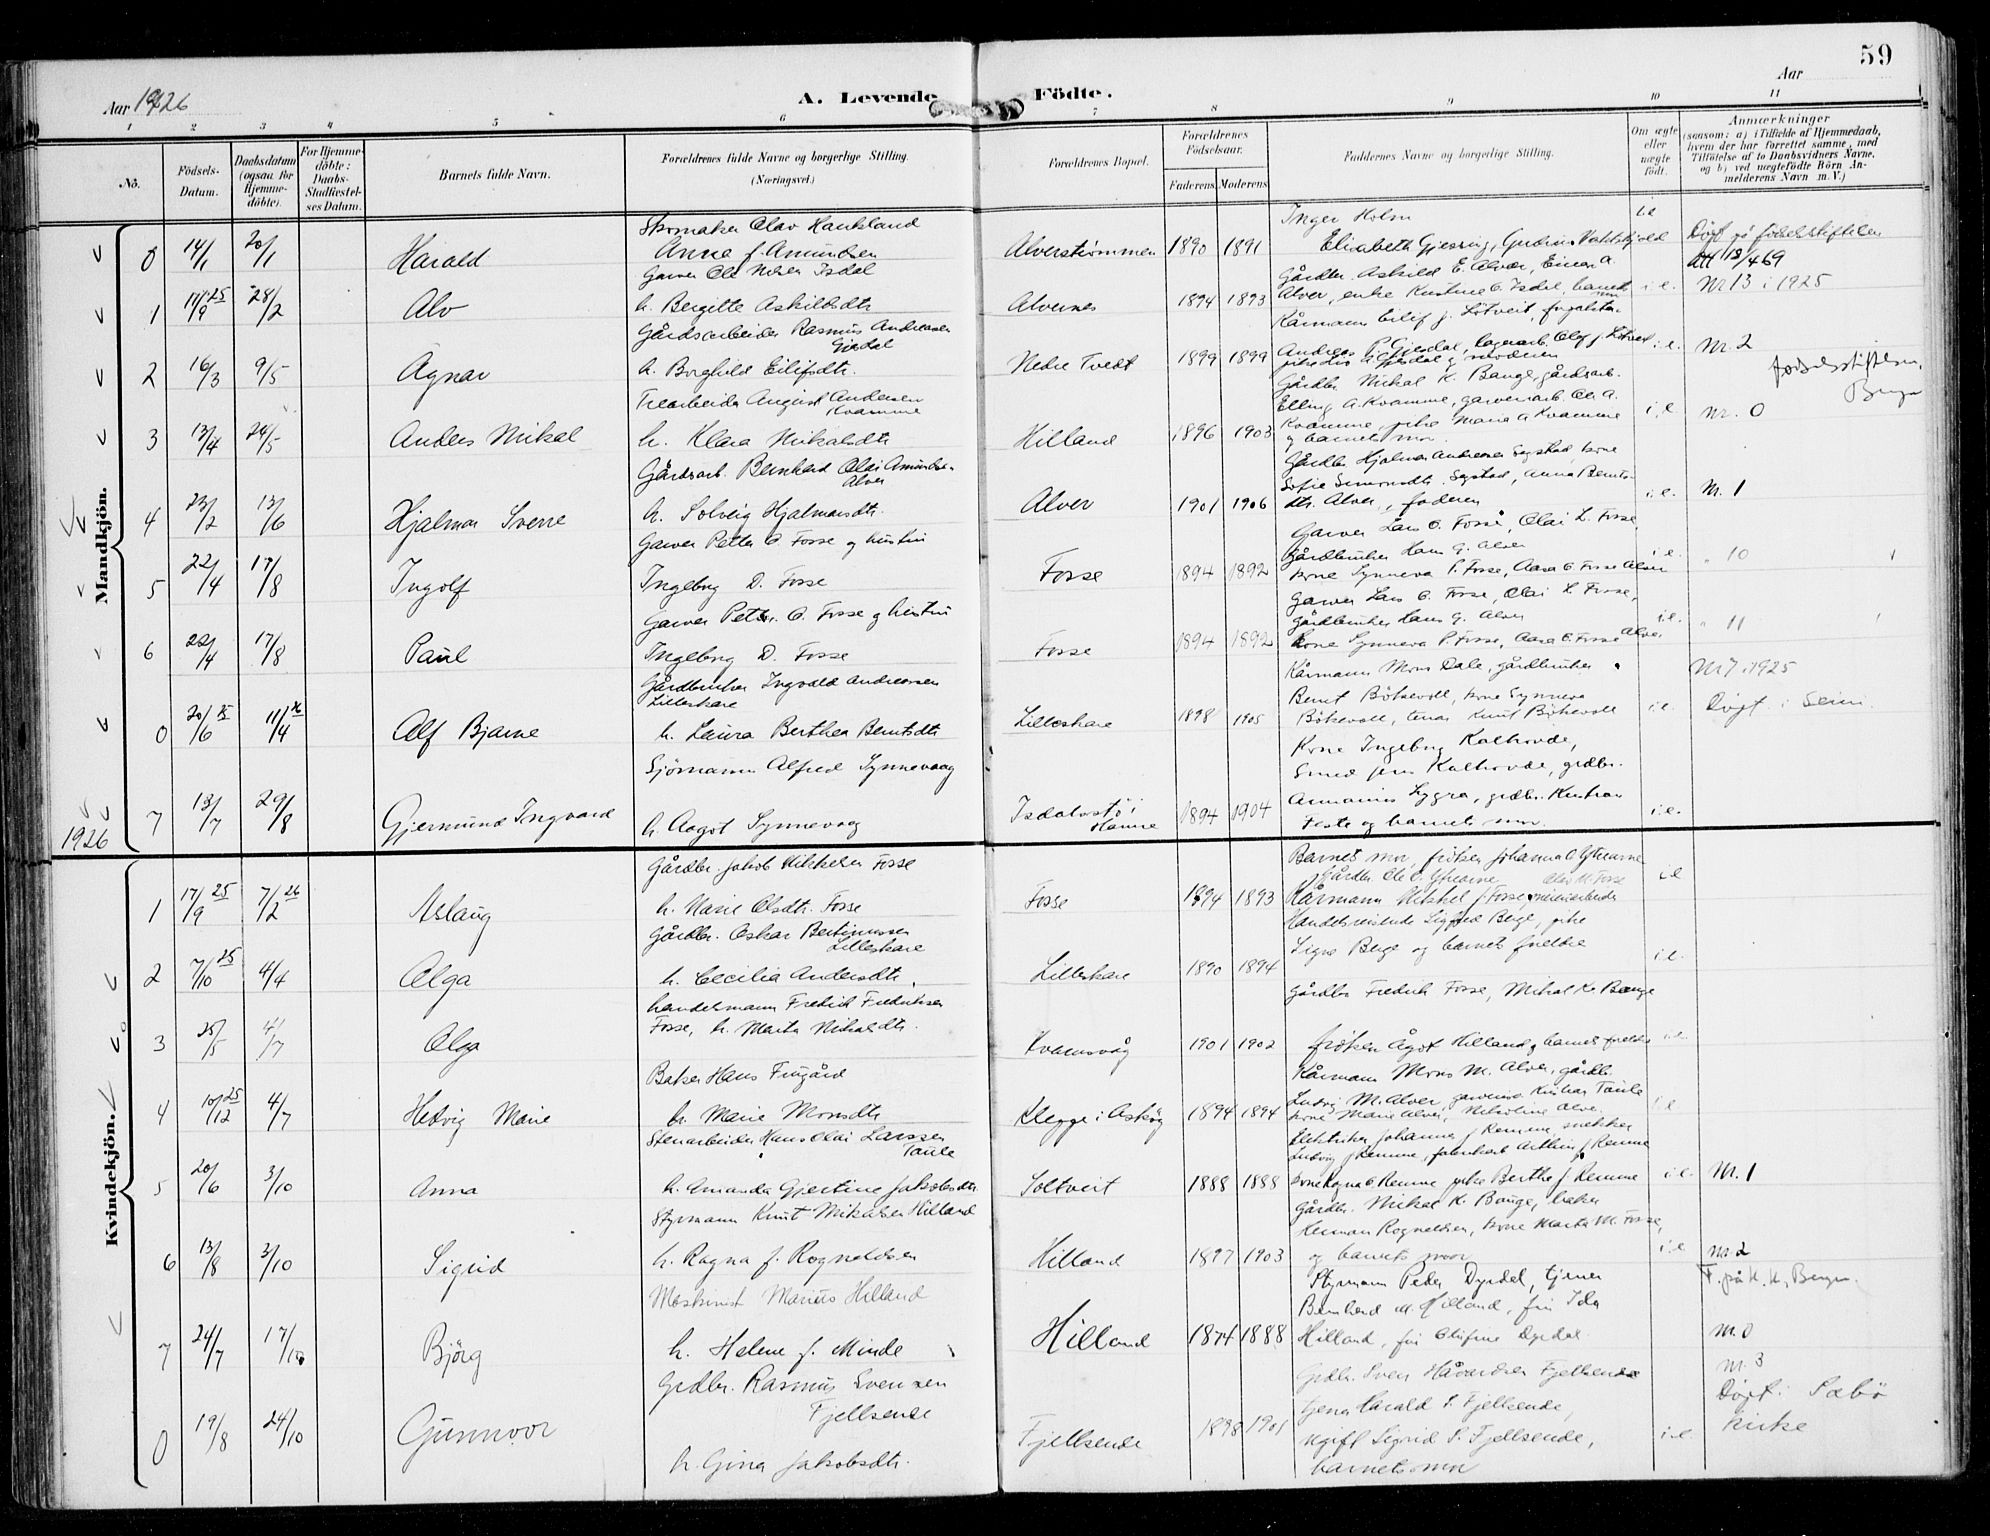 59
Aar 1926
A. Levende Födte.
Aar
1 2 3 4 5 6 7 8 9 10 11
No.
Födsels-Datum.
Daabsdatum (ogsaa for Hjemme-döbte).
For Hjemme-döbte: Daabs-Stadfæstel-ses Datum.
Barnets fulde Navn.
Forældrenes fulde Navne og borgerlige Stilling.
(Næringsvei.)
Forældrenes Bopæl.
Forældrenes Födselsaar.
Faderens Moderens
Faddernes Navne og borgerlige Stilling.
Om ægte eller uægte födt.
Anmærkninger
(saasom: a) i Tilfælde af Hjemmedaab, hvem der har forrettet samme, med Tilföielse af to Daabsvidners Navne, og b) ved uægtefödte Börn An-melderens Navn m. V.)
Mandkjön.
0 14/1 20/1 Harald
Skomaker Olav Haukland
Anna f. Amundsen
Alverströmmen 1890 1891
Inger Holm
Elisabeth Gjessing, Gudrun
i.e
Döpt på födselsstiftelsen
Att 12/469
1 11/9 25 28/2 Alv
Garver Ole Nilsen Isdal
h. Bergitte Askildsdtr
Alvernes 1894 1893
Gårdbr. Askild E. Alver, Einar A.
Alver, enke Kristine O. Isdal, barnets mor
i.e.
Nr 13 i 1925
2 16/3 9/5 Agnar
Gårdsarbeider Rasmus Andreassen Gjesdal
h. Borghild Eilifsdtr.
Nedre Tvedt 1899 1899
Kårmann Eilif J. Lötveit,
Andreas P. Gjesdal, lagerarb. Olaf J. Lötveit
i.e.
Nr. 2
födselsstiftelsen, Bergen
3 13/4 24/5 Anders Mikal
Trearbeider August Andersen Kvamme
h. Klara Mikalsdtr
Hilland 1896 1903
Gårdbr Mikal K. Bauge, gårdsarb.
Elling A. Kvamme, garveriarb. Ole A.
Kvamme, pike Maria A Kvamme
og barnets mor.
i.e.
nr. 0
4 23/2 13/6 Hjalmar Sverre
Gårdsarb. Bernhard Olai Amundsen Alver
h. Solveig Hjalmarsdtr.
Alver 1901 1906
Gårdbr Hjalmar Andreassen Segstad kone
Sofie Simonsdtr. Segstad, Anna Bernts-
dtr. Alver, faderen
i.e.
Nr. 1
5 22/4 17/8 Ingolf
Garver Petter O. Fosse og hustru
Ingeborg D. Fosse
Fosse 1894 1892
Garver Lars O. Fosse, Olai L. Fosse,
Gårdbruker Hans G. Alver
kone Synneva P. Fosse, Aasa O. Fosse Alver
i.e.
" 10
6 22/4 17/8 Paul
Garver Petter O. Fosse og hustru
Ingeborg D. Fosse
Fosse 1894 1892
Garver Lars O. Fosse, Olai L. Fosse,
gårdbruker Hans G. Alver
kone Synneva P. Fosse, Aasa O. Fosse Alver
i.e.
" 11
0 20/6 25 11/4 26 Alf Bjarne
Gårdbruker Ingvald Andreassen Lilleskare
h. Laura Berthea Berntsdtr
Lilleskare 1898 1905
Kårmann Mons Dale, gårdbruker
Bernt Bökevoll, kone Synneva
Bökevoll, Knut Bökevoll
i.e.
Nr 7 i 1925
Döpt i Seim
7 13/7 29/8 Gjermund Ingvard
Sjömann Alfred Synnevaag
h. Aagot Synnevaag
Isdalstö i Hamre 1894 1904
Kone Ingeborg Kalhovde,
Smed Jens Kalhovde, grdbr.
Annanias Lygra, grdbr. Kristian
Foste og barnets mor.
i.e.
1926
Kvindekjön.
1 17/9 25 7/2 26 Aslaug
Gårdbr. Jakob Mikkelsen Fosse
h. Marie Olsdtr. Fosse
Fosse 1894 1893
Barnets mor, fröken Johanna O Ytrearne
Gårdbr. Ole O. Ytrearne Olav M. Fosse
Kårmann Mikkel J Fosse meieriarbeider
i.e
2 7/10 25 4/4 Olga
Gårdbr. Oskar Bertinussen Lilleskare
h. Cecilia Andersdtr.
Lilleskare 1890 1894
Handelsreisende Sigfred Berge, pike
Signe Berge og barnets foreldre
i.e.
3 25/5 4/7 Olga
Handelsmann Fredrik Fredriksen
Fosse, h. Marta Mikalsdtr.
Kvamsvåg 1901 1902
Gårdbr Fredrik Fosse, Mikal K. Bauge
fröken Ågot Hilland og barnets foreldre
i.e.
4 10/12 25 4/7 Hedvig Marie
Baker Hans Fingård
h. Marie Monsdtr
Klegge i Asköy 1894 1894
Kårmann Mons M. Alver, gårdbr.
Ludvig M. Alver, Kristian Taule
kone Marie Alver, Nikoline Alver.
i.e
5 20/6 3/10 Anna
Stenarbeider Hans Olai Larssen Taule
h. Amanda Gjertine Jakobsdtr.
Soltveit 1888 1888
Elektriker Johannes J Remme snekker
Ludvig J Remme, fabrikarb Arthur J Remme
kone Ragna O Remme pike Berthe J Remme
i.e.
Nr. 1
6 13/8 3/10 Sigrid
Styrmann Knut Mikalsen Hilland
h. Ragna f. Rognaldsen
Hilland 1897 1903
Gårdbr. Mikal K. Bauge, baker
Herman Rognaldsen, kone Marta M. Fosse,
og barnets mor
i.e
nr. 2
F. på K.K, Bergen.
7 24/7 17/10 Björg
Maskinist Marius Hilland
h. Helene f. Minde
Hilland 1874 1888
Styrmann Peder Dyrdal, tjener
Bernhard M. Hilland, fru Ida
Hilland, fru Olufine Dyrdal
nr. 0
0 19/8 24/10 Gunnvor
Grdbr. Rasmus Svensen Fjellsende
h. Gina Jakobsdtr.
Fjellsende 1898 1901
Grdbr. Sven Håvardsen Fjellsende
tjener Harald S. Fjellsende,
ugift Sigrid S. Fjellsende,
barnets mor
i.e.
nr. 3
Döpt i Sæbö kirke